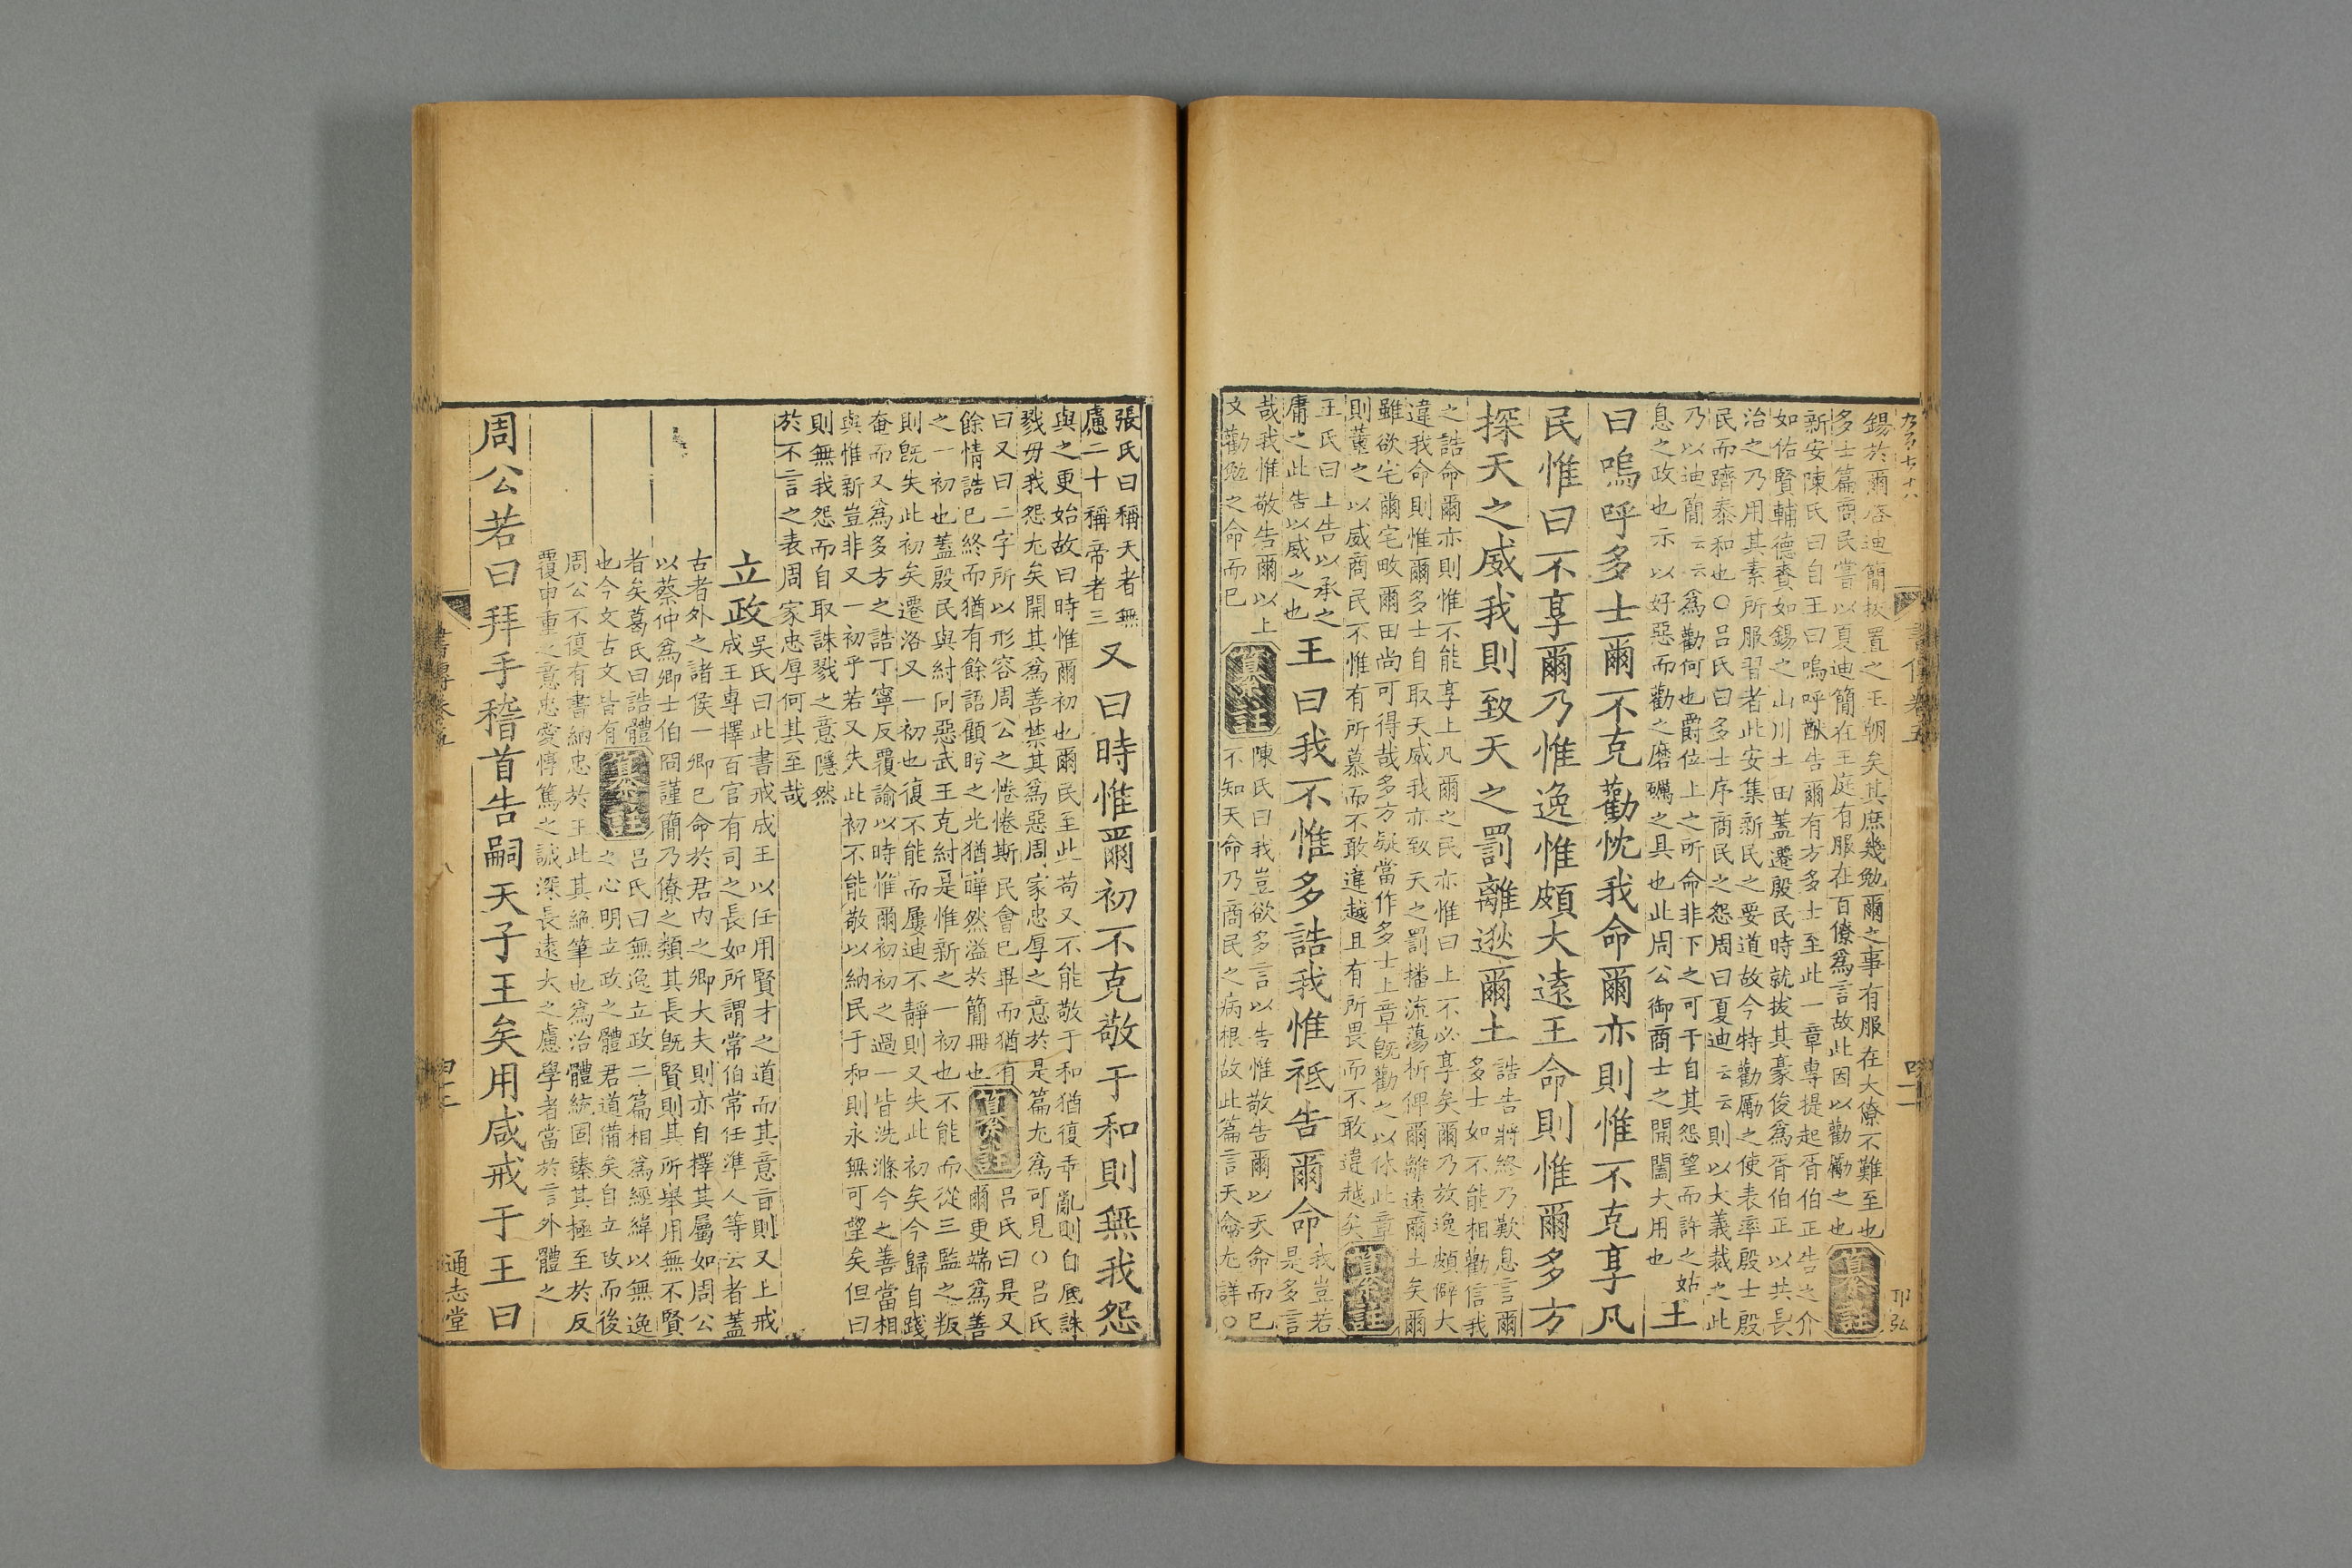 九百七十八
書傳卷五
四十二
錫於爾啓迪簡拔置之王朝矣其庶幾勉爾之事有服在大僚不難至也
多士篇商民嘗以夏迪簡在王庭有服在百僚爲言故此因以勸勵之也
纂註
新安陳氏曰自王曰嗚呼猷告爾有方多士至此一章專提起胥伯正告之介
如佑賢輔德賚如錫之山川土田蓋遷殷民時就拔其豪俊爲胥伯正以共長
治之乃用其素所服習者此安集新民之要道故今特勸厲之使表率殷士殷
民而躋泰和也○呂氏曰多士序商民之怨周曰夏迪云云則以大義裁之此
乃以迪簡云云爲勸何也爵位上之所命非下之可干自其怨望而許之姑
息之政也示以好惡而勸之磨礪之具也此周公御商士之開闔大用也
王
曰嗚呼多士爾不克勸忱我命爾亦則惟不克享凡
民惟曰不享爾乃惟逸惟頗大遠王命則惟爾多方
探天之威我則致天之罰離逖爾土
誥告將終乃歎息言爾
多士如不能相勸信我
之誥命爾亦則惟不能享上凡爾之民亦惟曰上不必享矣爾乃放逸頗僻大
違我命則惟爾多士自取天威我亦致天之罰播流蕩析俾爾離遠爾土矣爾
雖欲宅爾宅畋爾田尚可得哉多方疑當作多士上章旣勸之以休此章
則董之以威商民不惟有所慕而不敢違越且有所畏而不敢違越矣
纂註
王氏曰上告以承之
庸之此告以威之也
王曰我不惟多誥我惟祗告爾命
我豈若
是多言
哉我惟敬告爾以上
文勸勉之命而已
纂註
陳氏曰我豈欲多言以告惟敬告爾以天命而已
不知天命乃商民之病根故此篇言天命尤詳○
張氏曰稱天者無
慮二十稱帝者三
又曰時惟爾初不克敬于和則無我怨
與之更始故曰時惟爾初也爾民至此苟又不能敬于和猶復乖亂則自厎誅
戮毋我怨尤矣開其爲善禁其爲惡周家忠厚之意於是篇尤爲可見○呂氏
曰又曰二字所以形容周公之惓惓斯民會已畢而猶有
餘情誥已終而猶有餘語顧眄之光猶曄然溢於簡冊也
纂註
呂氏曰是又
爾更端爲善
之一初也蓋殷民與紂同惡武王克紂是惟新之一初也不能而從三監之叛
則旣失此初矣遷洛又一初也復不能而屢迪不靜則又失此初矣今歸自踐
奄而又爲多方之誥丁寧反覆諭以時惟爾初初之過一皆洗滌今之善當相
與惟新豈非又一初乎若又失此初不能敬以納民于和則永無可望矣但曰
則無我怨而自取誅戮之意隱然
於不言之表周家忠厚何其至哉
立政
吳氏曰此書戒成王以任用賢才之道而其意盲則又上戒
成王專擇百官有司之長如所謂常伯常任準人等云者蓋
古者外之諸侯一卿已命於君內之卿大夫則亦自擇其屬如周公
以蔡仲爲卿士伯冏謹簡乃僚之類其長旣賢則其所舉用無不賢
者矣葛氏曰誥體
也今文古文皆有
纂註
呂氏曰無逸立政二篇相爲經緯以無逸
之心明立政之體君道備矣自立政而後
周公不復有書納忠於王此其絶筆也爲治體統固臻其極至於反
覆申重之意忠愛惇篤之誠深長遠大之慮學者當於言外體之
周公若曰拜手稽首告嗣天子王矣用咸戒于王曰
書傳卷五
通志堂